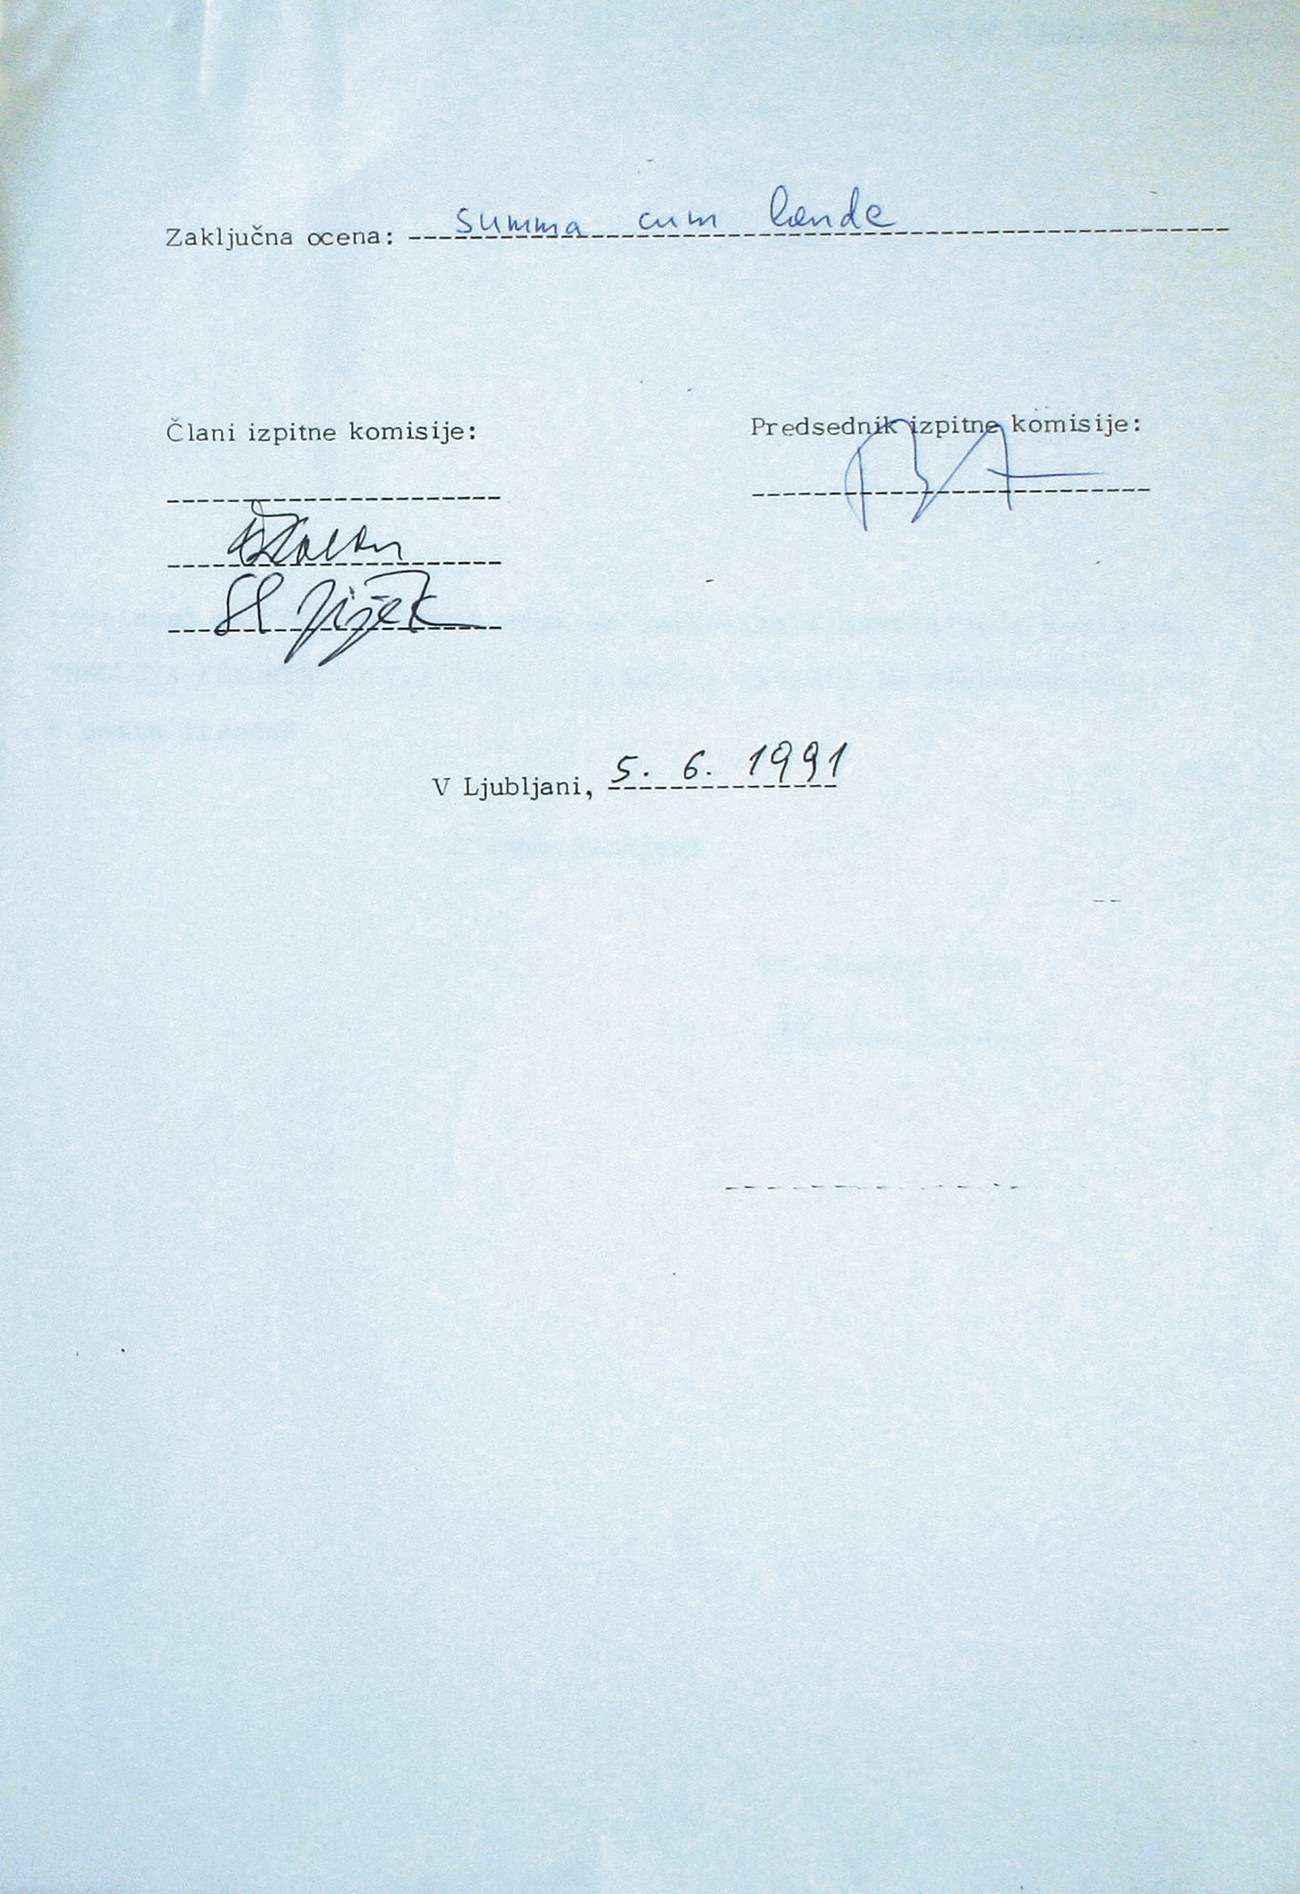 Zaključna ocena: summa cum laude
Člani izpitne komisije:
Predsednik izpitne komisije:
Sl Žižek
V Ljubljani, 5. 6. 1991